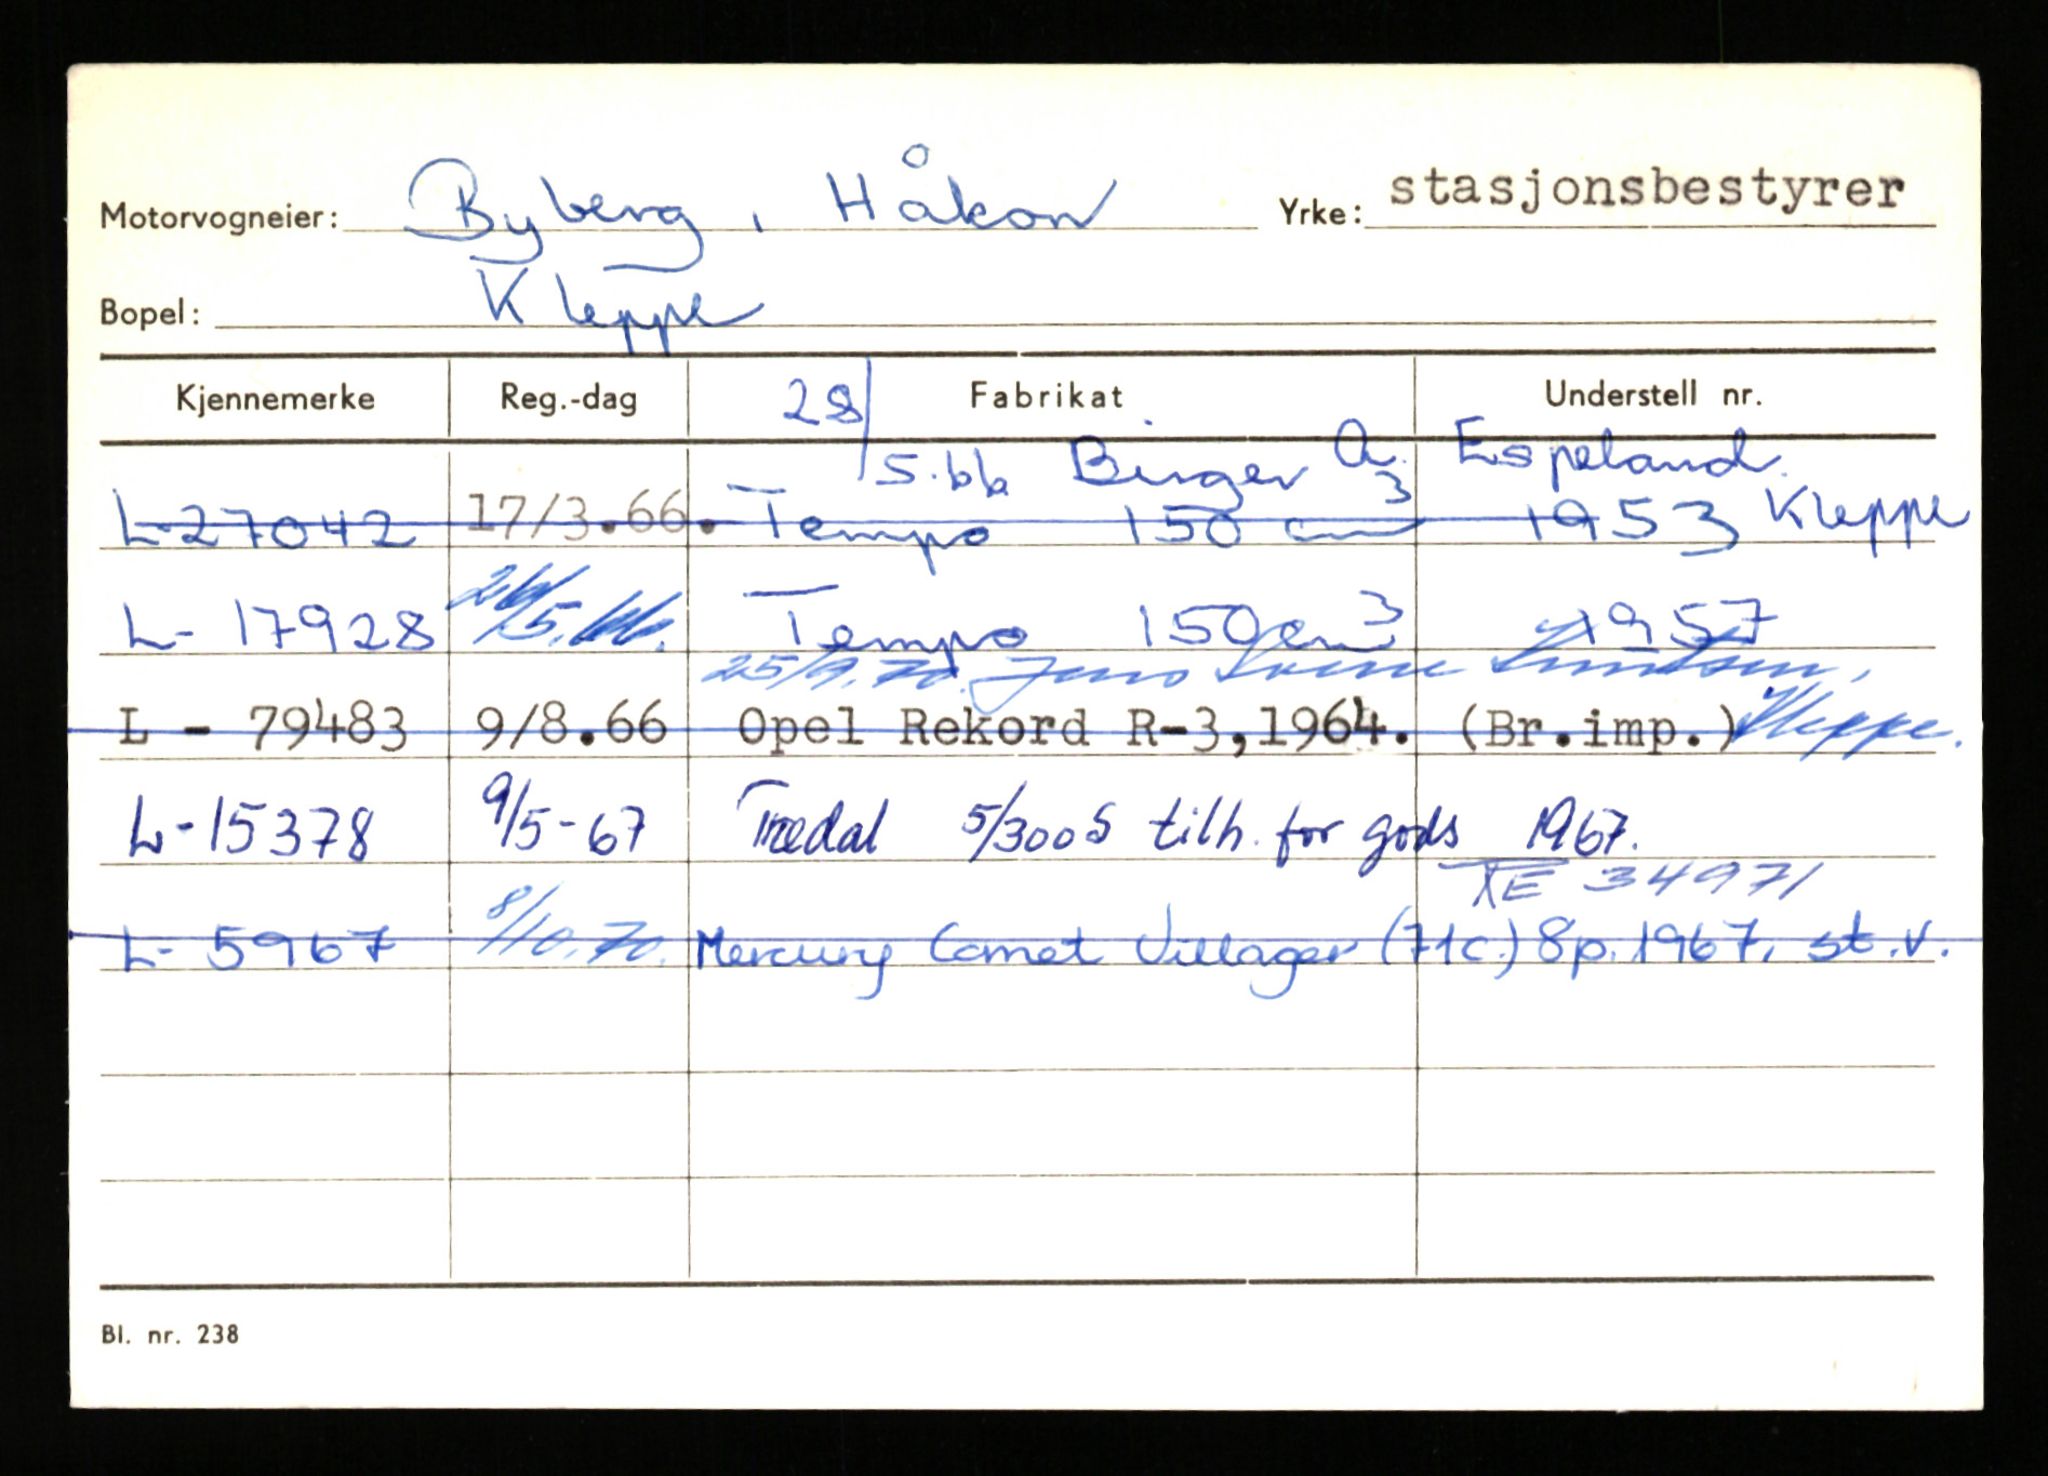 Motorvogneier: Byberg, Håkon Yrke: stasjonsbestyrer
Bopel: Kleppe
Kjennemerke Reg.-dag Fabrikat Understell nr.
28/5.66 Birger A. Espeland. Kleppe
L-27042 17/3.66. Tempo 150 cm3 1953
L-17928 26/5.66. Tempo 150 cm3 1957
25/9.70. Jens Knutsen, Kleppe.
L - 79483 9/8.66 Opel Rekord R-3,1964. (Br.imp.)
L-15378 9/5-67 Trædal 5/300S tilh. for gods 1967.
TE 34971
L-5967 8/10.70. Mercury Comet Villager (71c.) 8p. 1967. st.v.
Bl. nr. 238